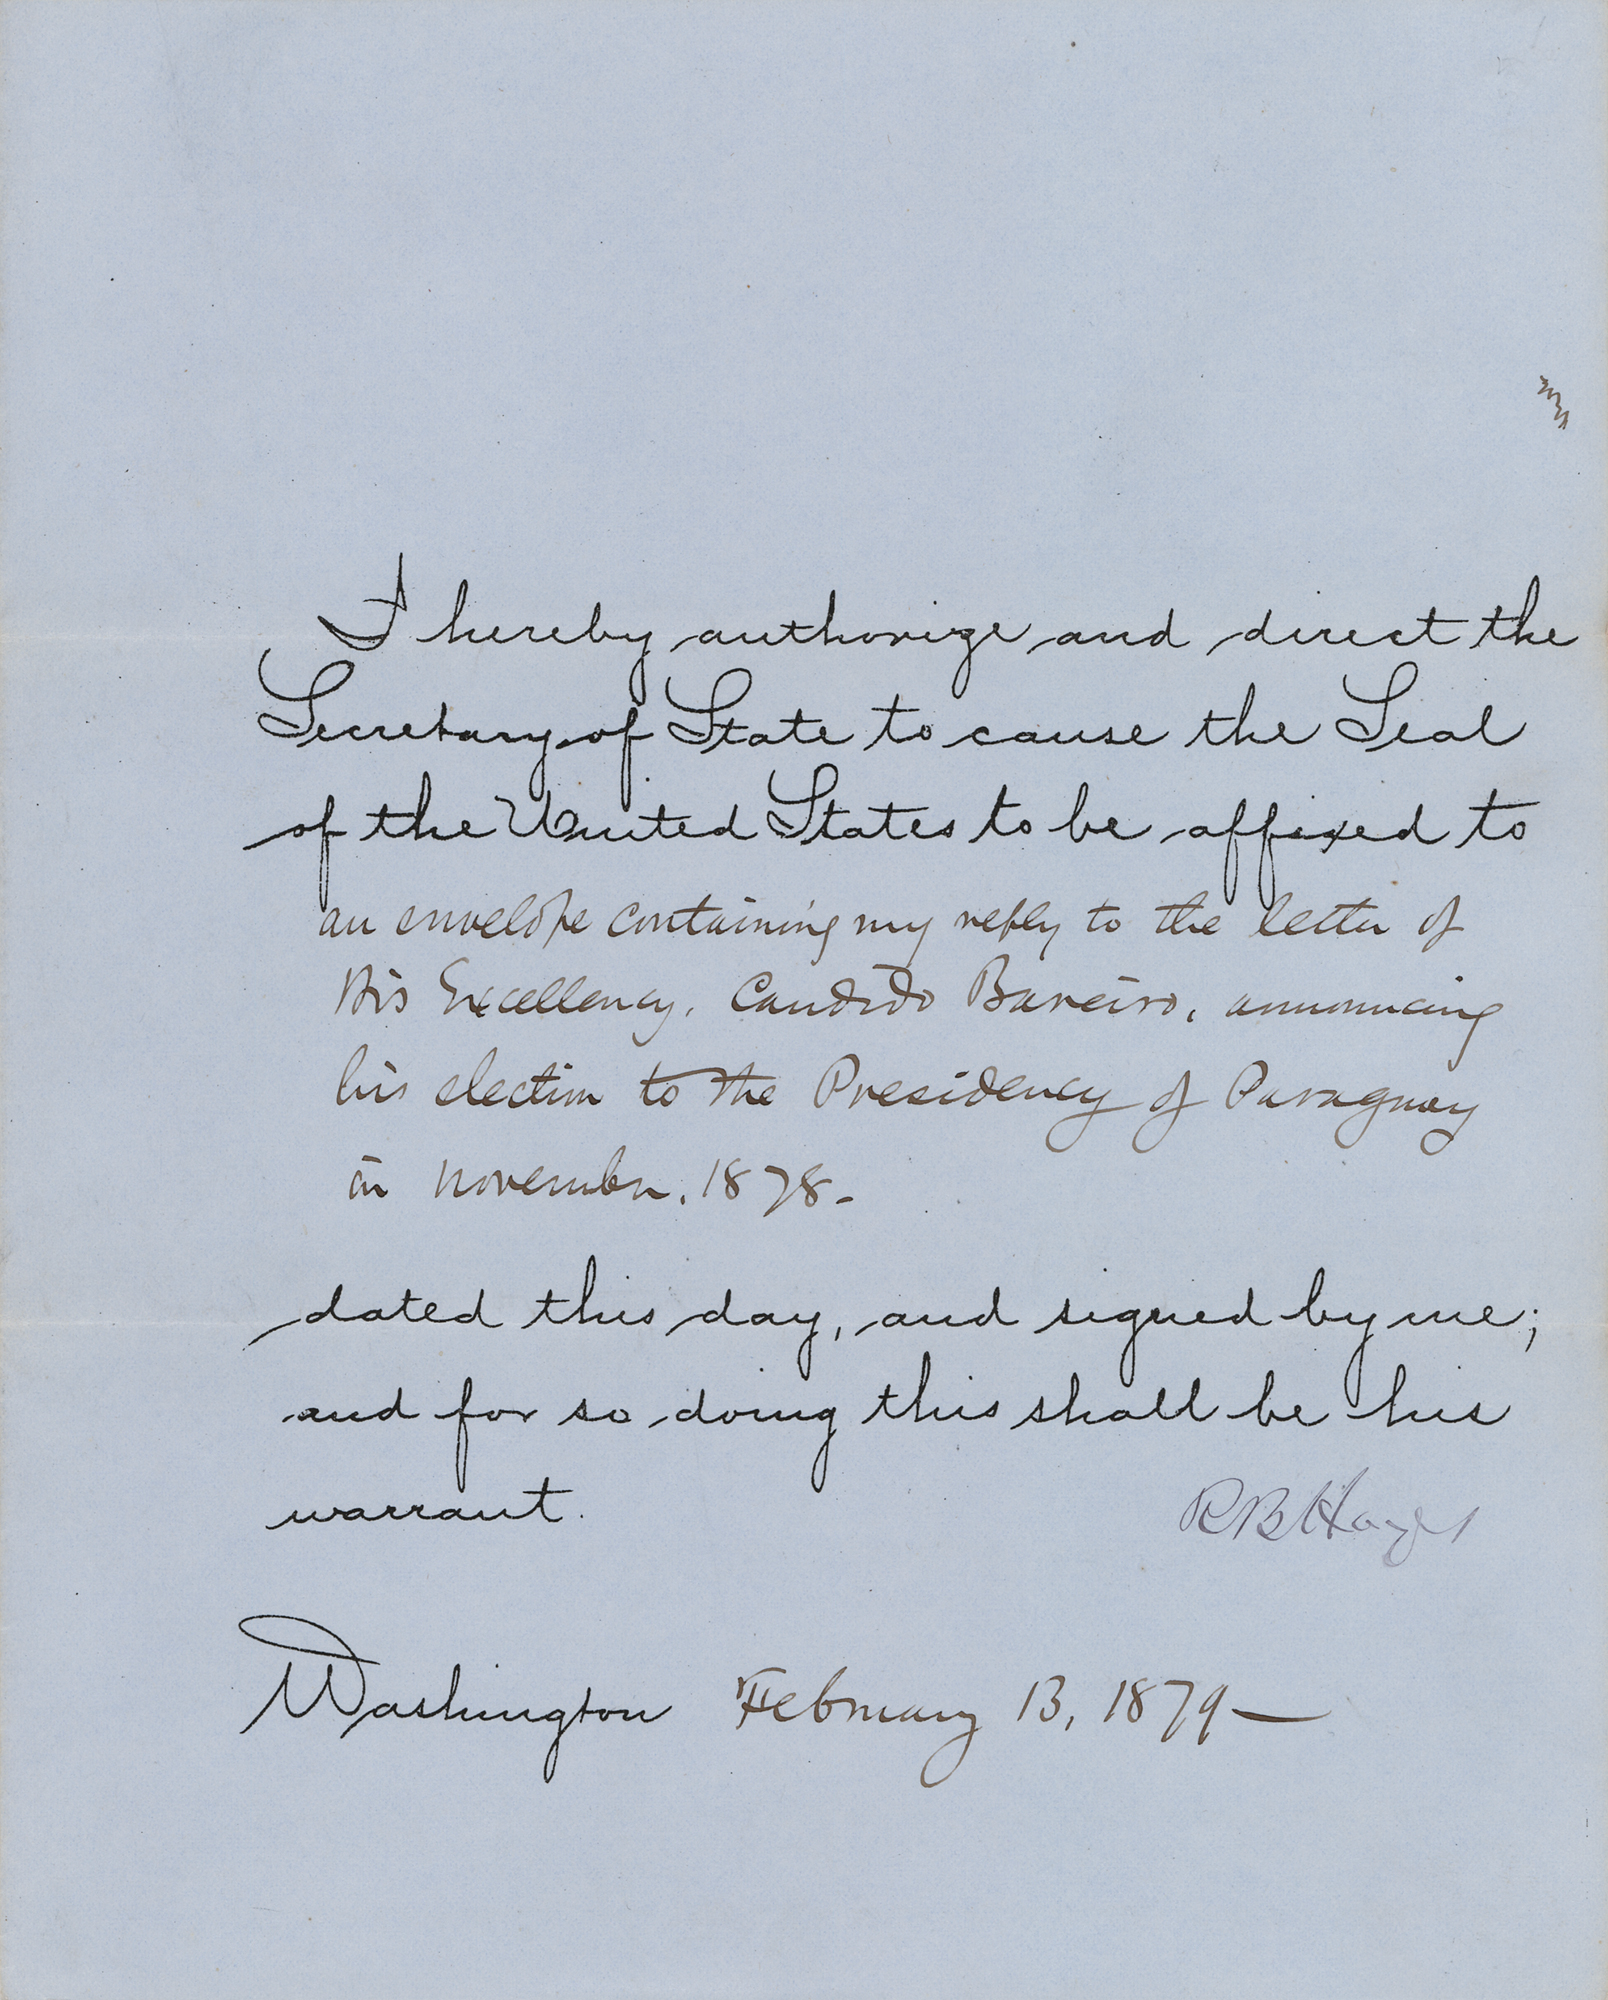 I hereby authorize and direct the
Secretary of State to cause the Seal
of the United States to be affixed to
an envelope containing my reply to the letter of
His Excellency, Candido Bareiro, announcing
his election to the Presidency of Paraguay
in November, 1878-
dated this day, and signed by me;
and for so doing this shall be his
warrant.
R B Hayes
Washington February 13, 1879—